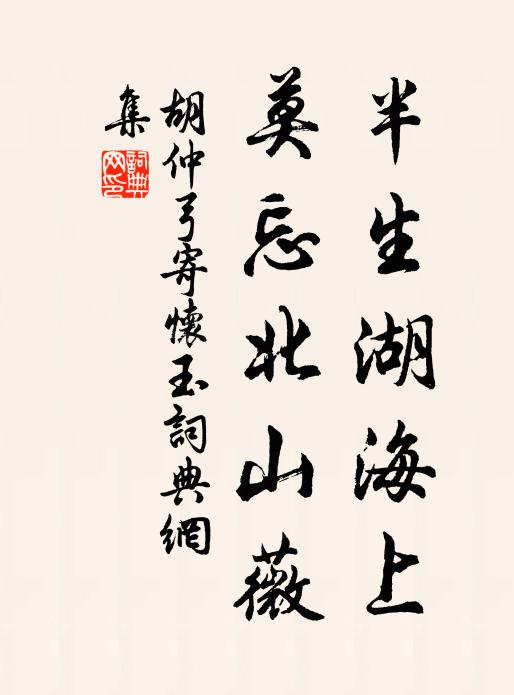 半生湖海上
莫忘北山薇
胡仲弓寄懷玉詞典網
集
詞典網印